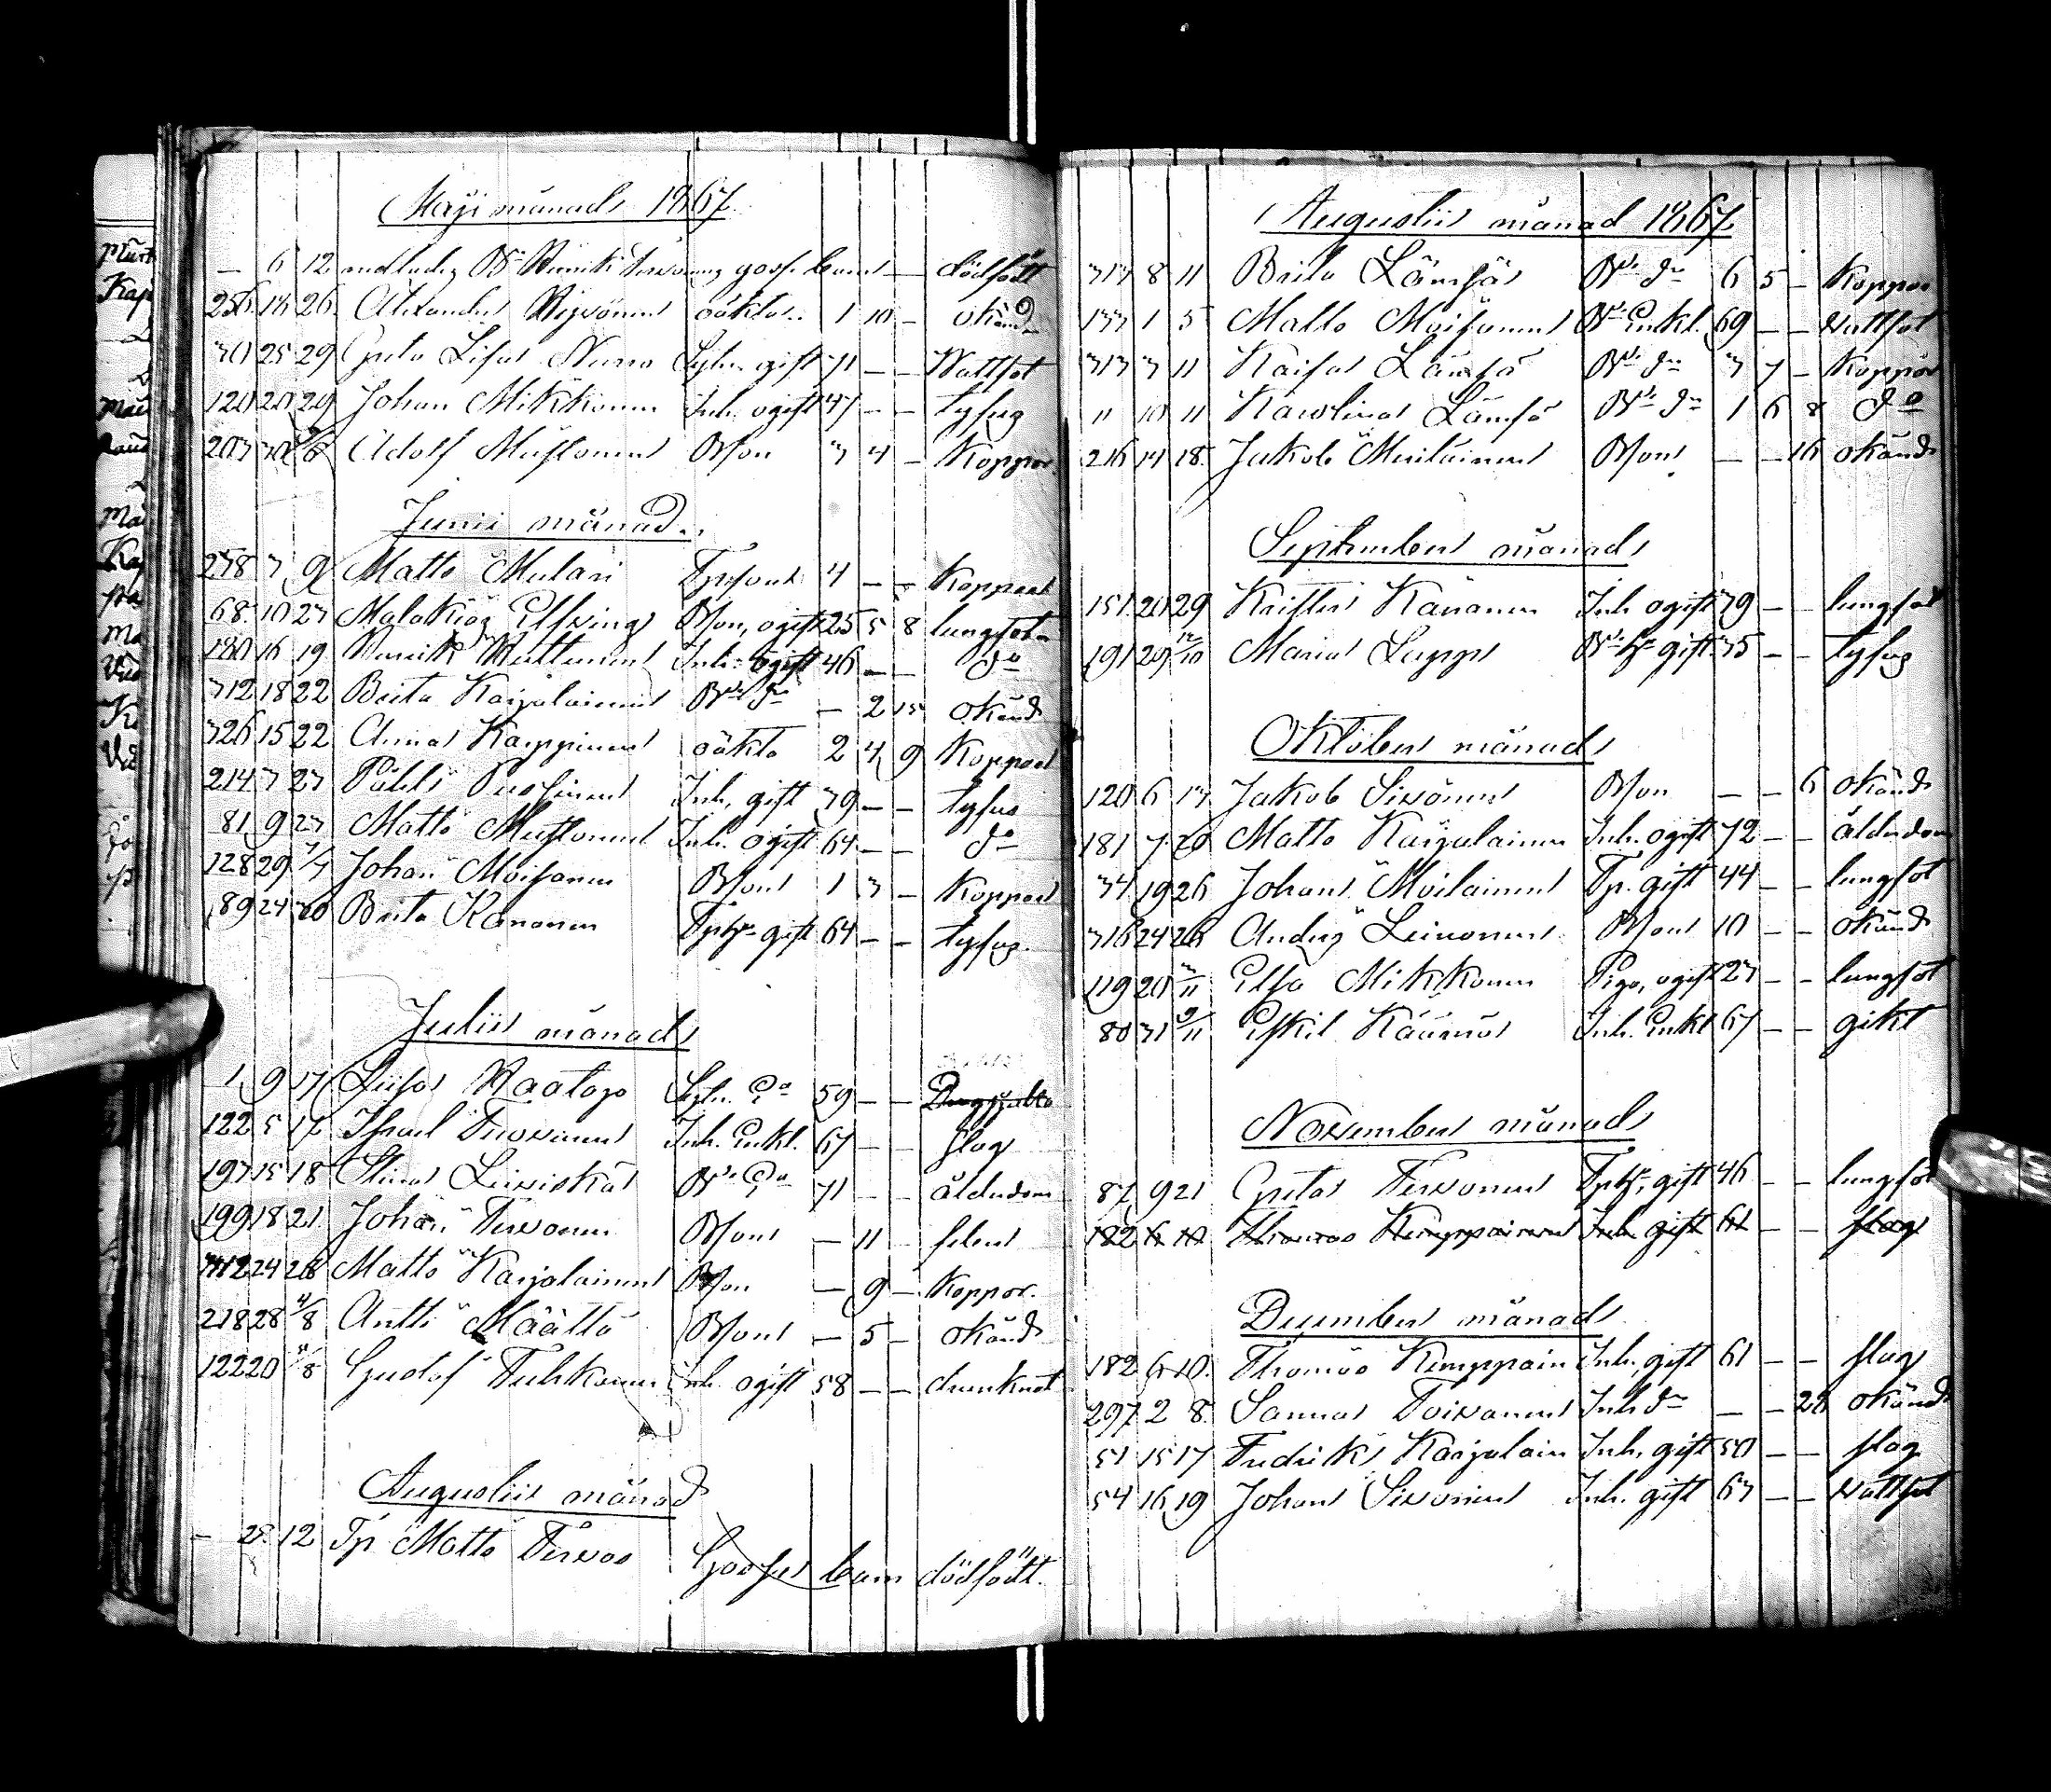 Maji månad 1867.
— 6 12 Bd Henrik Tervonens gosse barn — dödfödt
256 18 26 Alexander Rijsönen oäkta 1 10 — okänd
30 25 29 Greta Lisa Nurro Sytn. gift 71 — — Wattsot
120 20 29 Johan Mikkonen Inh. ogift 47 — — tyfus
203 30 2/6 Adolf Mustonen Bson 3 4 — Koppor
Junii månad.
278 3 9 Matts Mulari Tpson 4 — — Koppor
68 10 23 Malakias Elfving Bson, ogift 25 5 8 lungsot
180 16 19 Henrik Huttunen Inh. ogift 46 — — do
312 18 22 Brita Karjalainen Bde dr — 2 15 okänd
326 15 22 Anna Kemppinen oäkta 2 4 9 Koppor
214 3 23 Påhl Pussinen Inh. gift 39 — — tyfus
81 9 23 Matts Mustonen Inh. ogift 64 — — do
128 29 7/7 Johan Moisanen Bson 1 3 — Koppor
89 24 30 Brita Kananen Tphu gift 64 — — tyfus.
Julii månad
1 9 17 Liisa Raatopo Sytn. Ea 59 — —
122 5 17 Israel Tervonen Inh. Enkl. 67 — — slag
197 15 18 Stina Leiviskä Bde Ea 71 — — ålderdom
199 18 21 Johan Tervonen Bson — 11 — feber
312 24 28 Matts Karjalainen Bson — 9 — Koppor.
218 28 4/8 Antti Määttä Bson — 5 — okänd
122 20 4/8 Gustaf Tuhkanen Inh. ogift 58 — — drunknat
Augustii månad
— 28. 12 Tp Matts Tervos Gosse barn dödfödt.
Augustii månad 1867.
313 8 11 Brita Lämsä Bde dr 6 5 — Koppor
133 1 5 Matts Moisanen Bde Enkl. 69 — — Wattsot
313 3 11 Kaisa Lämsä Bde dr 3 7 — Koppor
11 10 11 Karolina Lämsä Bde dr 1 6 8 do
216 14 18. Jakob Meriläinen Bson — — 16 okänd
September månad
151 20 29 Krister Känänen Inh. ogift 39 — — lungsot
191 29 12/10 Maria Lappi Bde hu gift. 35 — — tyfus
Oktober månad
120 6 13 Jakob Sivonen Bson — — 6 okänd
181 7 20 Matts Karjalainen Inh. ogift 72 — — ålderdom
34 19 26 Johan Moilanen Tp. gift 44 — — lungsot
316 24 26 Anders Leinonen Bson 10 — — okänd
119 20 3/11 Elsa Mikkonen Piga, ogift 23 — — lungsot
80 31 9/11 Eskil Käämö Inh. Enkl 67 — — gikt
November månad
87 9 21 Greta Tervonen Tphu, gift 46 — — lungsot
182 6 10 Thomas Kemppainen Inh. gift 61 — — slag
December månad
182 6 10. Thomas Kemppain Inh. gift 61 — — slag
297 2 8. Sanna Toivanen Inh dr — — 28 okänd
51 15 17 Fredrik Karjalain Inh. gift 50 — — slag
54 16 19 Johan Sivonen Inh. gift 63 — — Wattsot